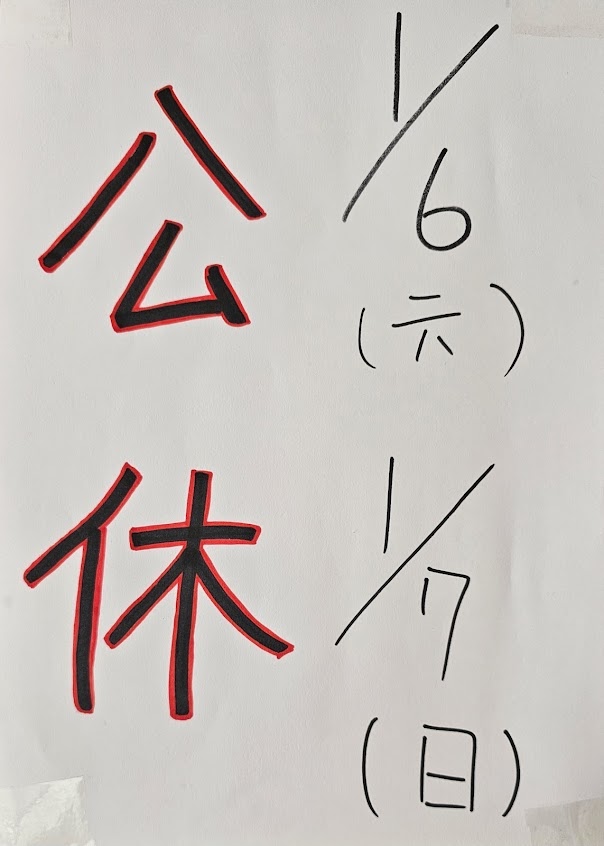 公休
1/6
(六)
1/7
(日)